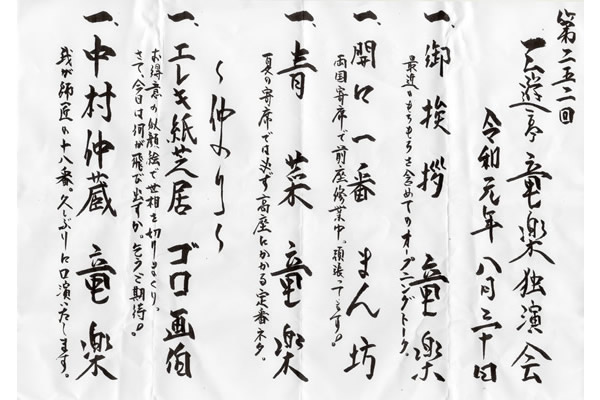 第二五二回
三遊亭竜楽独演会
令和元年 八月三十日
一、御挨拶 竜楽
最近のもろもろを含めてのオープニングトーク。
一、開口一番 まん坊
両国寄席で前座修業中。頑張ってます!
一、青菜 竜楽
夏の寄席では必ず高座にかかる定番ネタ。
〜仲入り〜
一、エレキ紙芝居 ゴロ画伯
お得意の似顔絵で世相を切りまくり。
さて、今日は何が飛び出すか。乞うご期待!
一、中村仲蔵 竜楽
我が師匠の十八番。久しぶりに口演いたします。